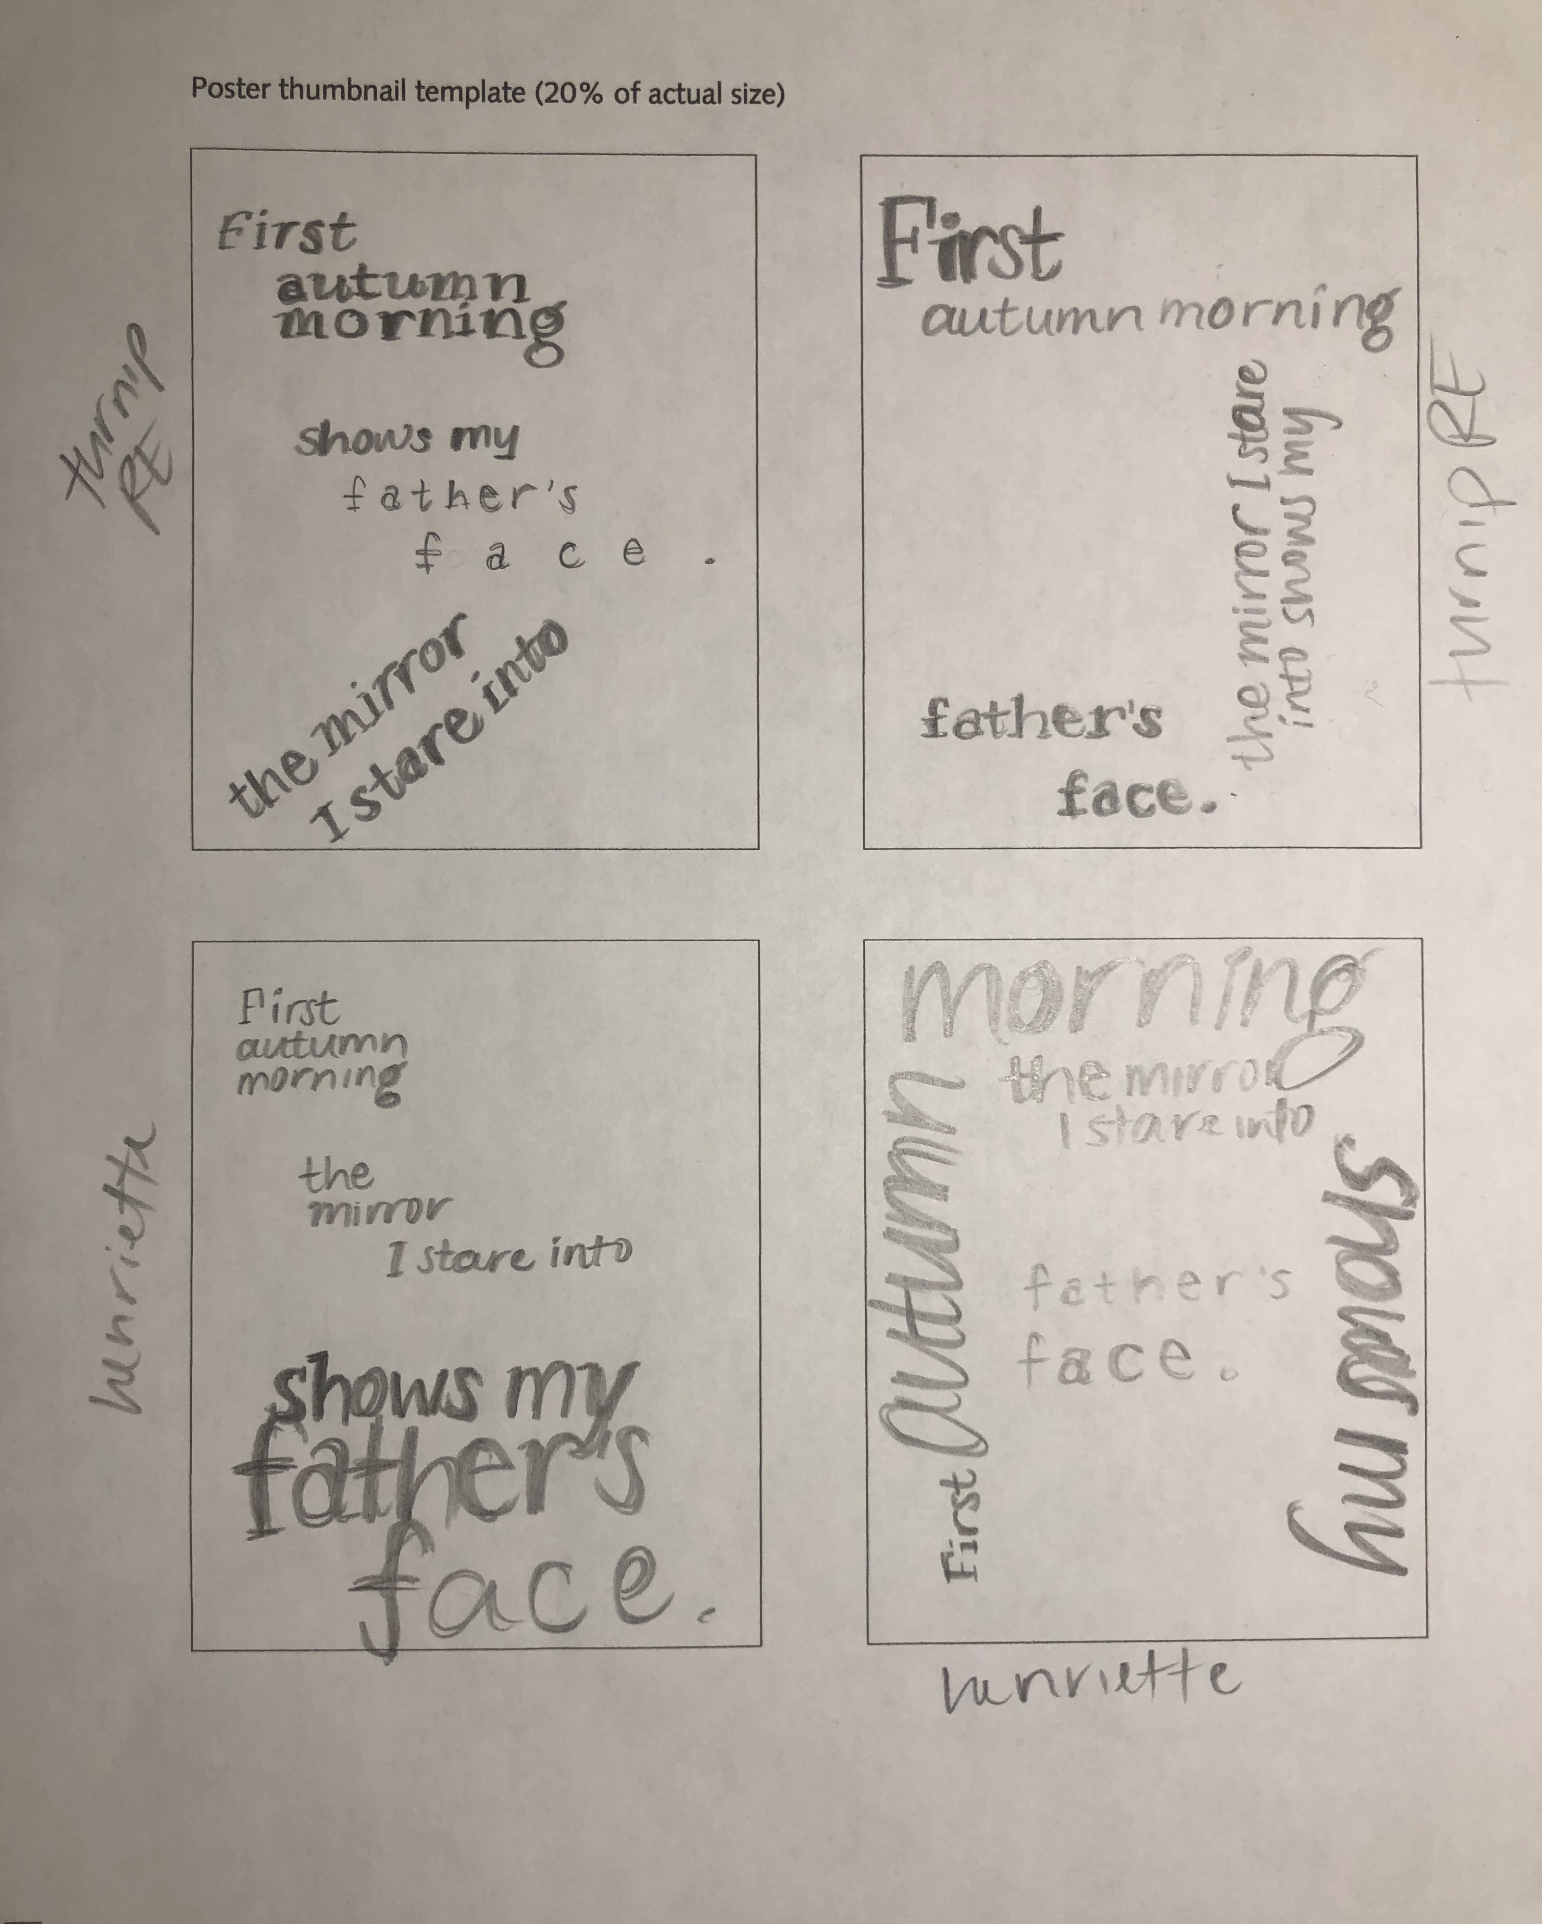 Poster thumbnail template (20% of actual size)
turnip
RE
First
autumn
morning
shows my
father's
face.
the mirror
I stare into
First
autumn morning
the mirror I stare
into shows my
father's
face.
turnip RE
henrietta
First
autumn
morning
the
mirror
I stare into
shows my
father's
face.
First autumn
morning
the mirror
I stare into
shows my
father's
face.
henriette